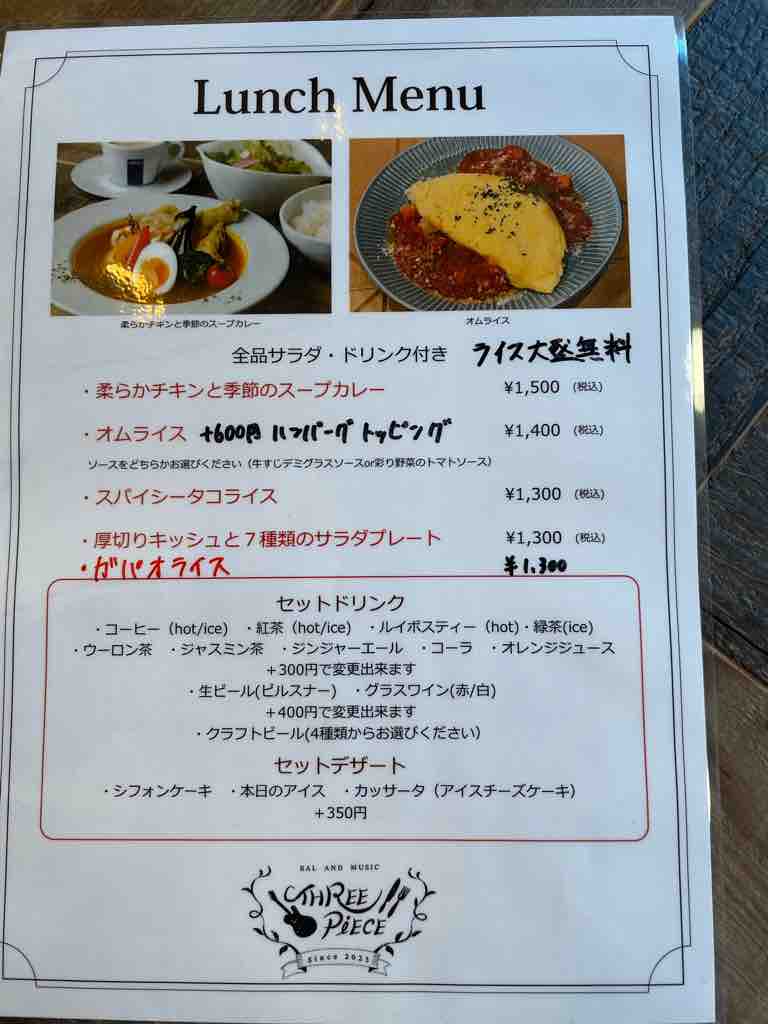 Lunch Menu
柔らかチキンと季節のスープカレー
オムライス
全品サラダ・ドリンク付き ライス大盛無料
・柔らかチキンと季節のスープカレー ¥1,500 (税込)
・オムライス +600円 ハンバーグ トッピング ¥1,400 (税込)
ソースをどちらかお選びください（牛すじデミグラスソースor彩り野菜のトマトソース）
・スパイシータコライス ¥1,300 (税込)
・厚切りキッシュと７種類のサラダプレート ¥1,300 (税込)
・ガパオライス ¥1,300
セットドリンク
・コーヒー（hot/ice) ・紅茶（hot/ice) ・ルイボスティー（hot)・緑茶(ice)
・ウーロン茶 ・ジャスミン茶 ・ジンジャーエール ・コーラ ・オレンジジュース
＋300円で変更出来ます
・生ビール(ピルスナー) ・グラスワイン(赤/白)
＋400円で変更出来ます
・クラフトビール(4種類からお選びください）
セットデザート
・シフォンケーキ ・本日のアイス ・カッサータ（アイスチーズケーキ）
＋350円
BAL AND MUSIC
THREE
PiECE
Since 2023